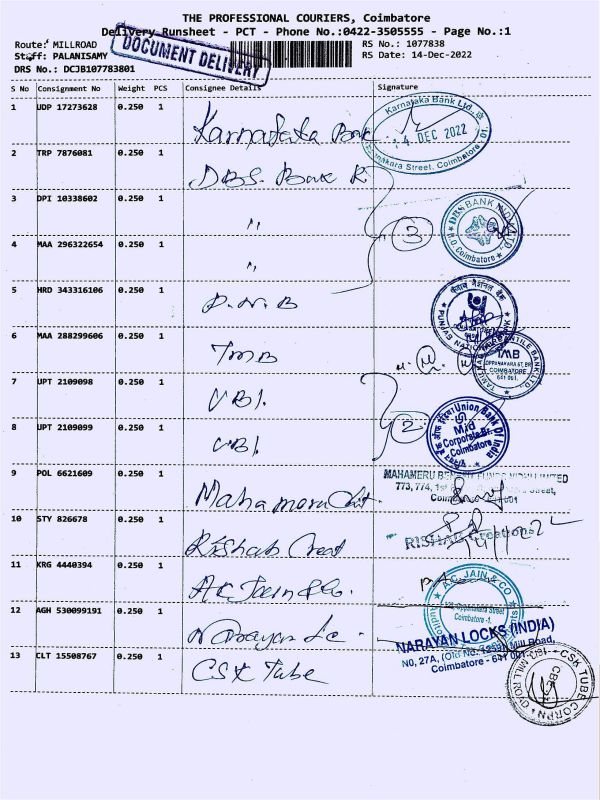 THE PROFESSIONAL COURIERS, Coimbatore
Delivery Runsheet - PCT - Phone No.:0422-3505555 - Page No.:1
Route: MILLROAD RS No.: 1077838
Staff: PALANISAMY RS Date: 14-Dec-2022
DOCUMENT DELIVERY
DRS No.: DCJB107783801
S No Consignment No Weight PCS Consignee Details Signature
1 UDP 17273628 0.250 1 Karnataka Bank
Karnataka Bank Ltd.,
14 DEC 2022
Street, Coimbatore
2 TRP 7876081 0.250 1 DBS. Bank R.
3 DPI 10338602 0.250 1 "
3
DBS BANK INDIA LTD.
R.O. Coimbatore
4 MAA 296322654 0.250 1 "
5 HRD 343316106 0.250 1 P.N.B
पंजाब नैशनल बैंक
PUNJAB NATIONAL BANK
6 MAA 288299606 0.250 1 TMB
TMB
OPPANAKARA ST, BR
COIMBATORE
641 001.
7 UPT 2109098 0.250 1 UBI.
8 UPT 2109099 0.250 1 UBI.
2
Union Bank Of India
Mid
Corporate Br.
Coimbatore
9 POL 6621609 0.250 1 Mahameru Chit.
MAHAMERU LIMITED
773, 774, Street,
641 001
10 STY 826678 0.250 1 Rishab Creat
RISHAB Creations
11 KRG 4440394 0.250 1 A.C. Jain & Co.
A.C. JAIN & CO
Oppanakara Street
Coimbatore -1.
12 AGH 530099191 0.250 1 Narayan Lo
NARAYAN LOCKS (INDIA)
NO, 27A, (Old No. 1259) Mill Road,
Coimbatore - 641 001
13 CLT 15508767 0.250 1 CSK Tube
CSK TUBE CORPN
MILL ROAD
CBE-1